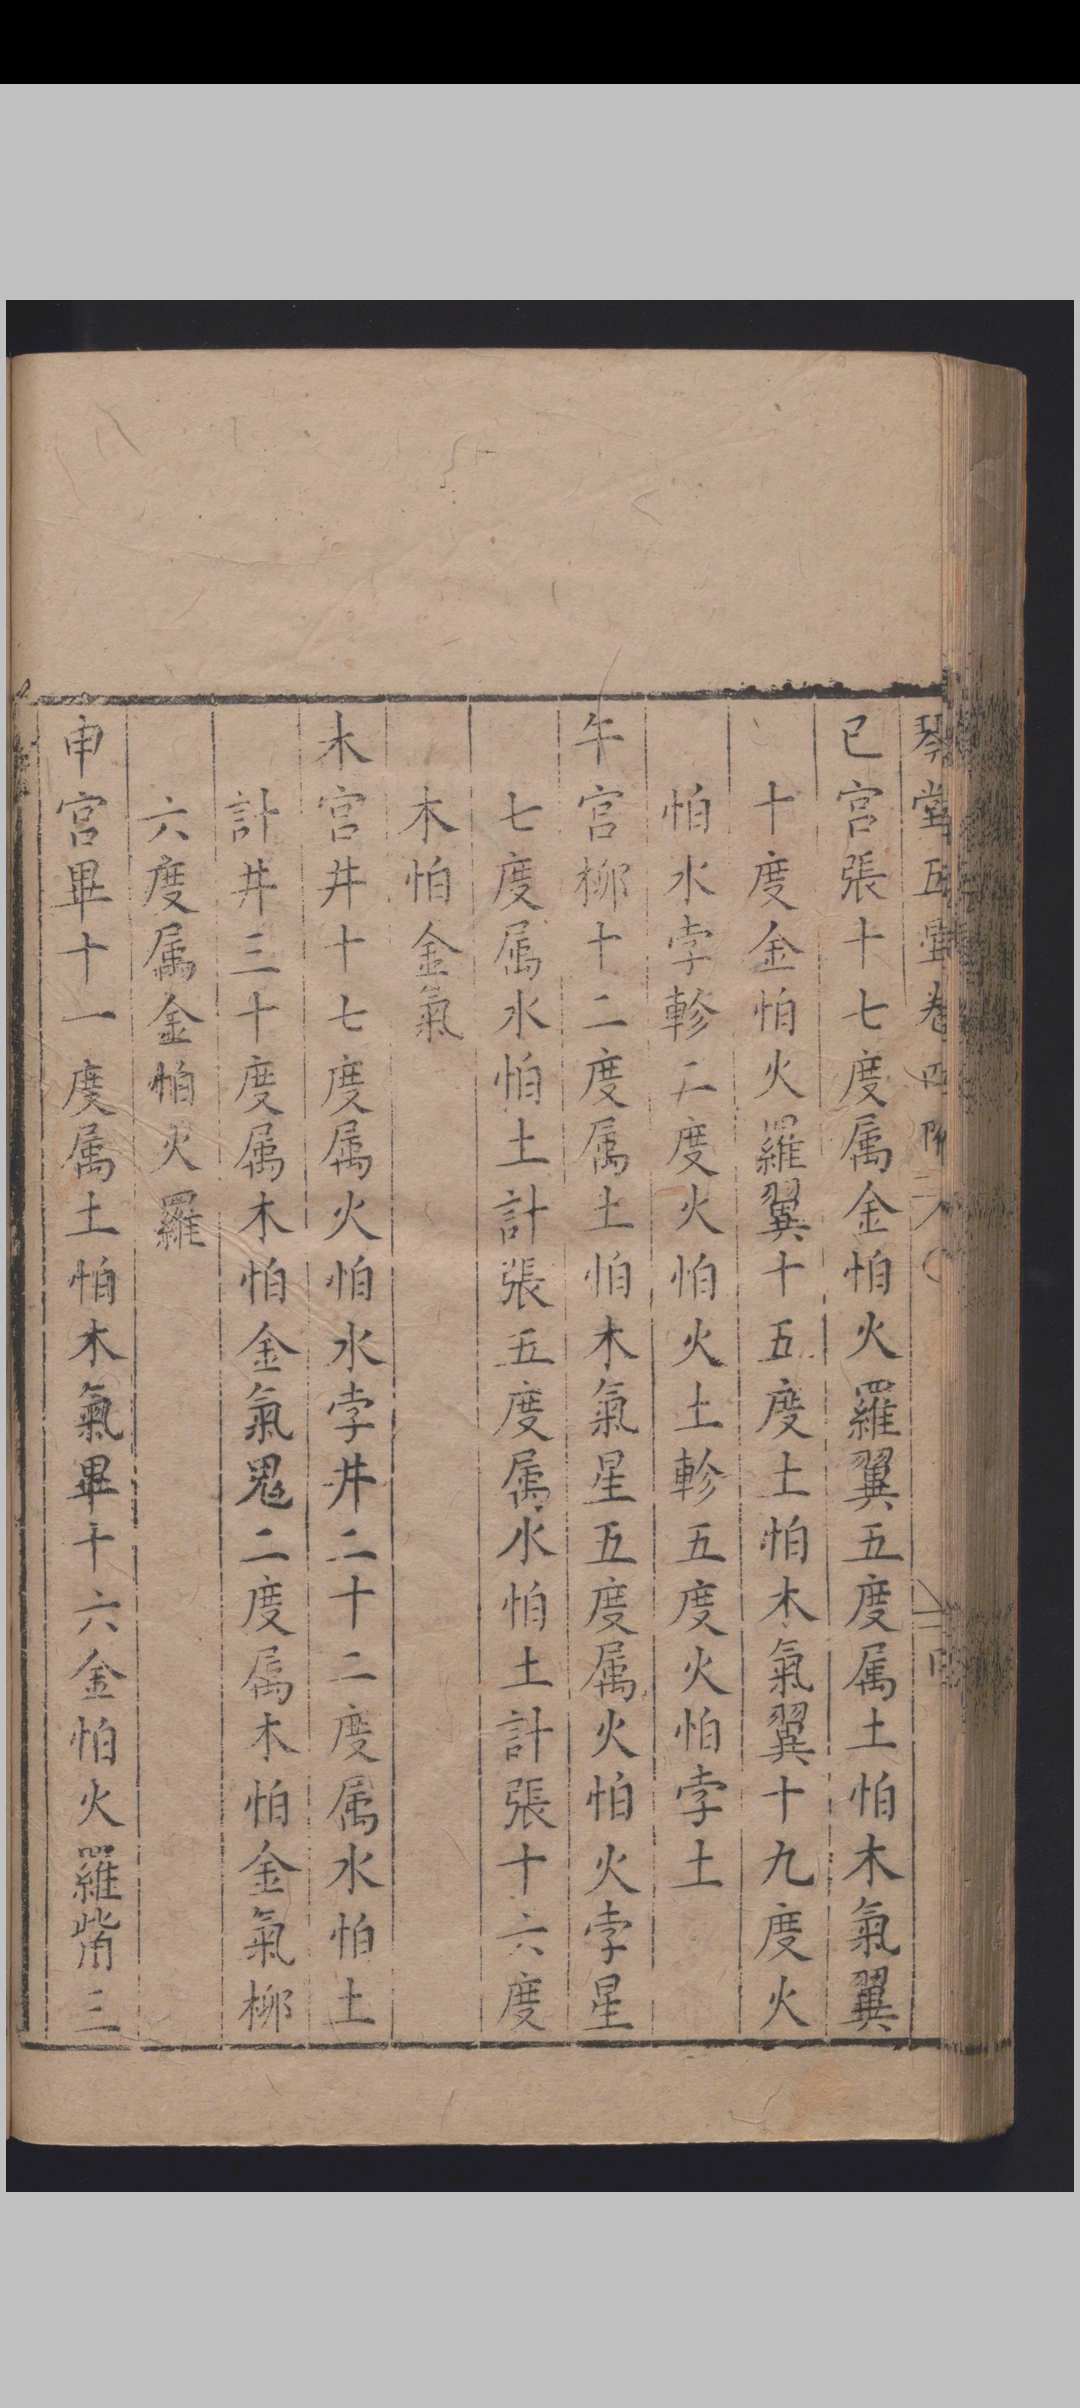 琴堂五星卷四
巳宮張十七度属金怕火羅翼五度属土怕木氣翼
十度金怕火羅翼十五度土怕木氣翼十九度火
怕水孛軫二度火怕火土軫五度火怕孛土
午宮柳十二度属土怕木氣星五度属火怕火孛星
七度属水怕土計張五度属水怕土計張十六度
木怕金氣
木宮井十七度属火怕水孛井二十二度属水怕土
計井三十度属木怕金氣鬼二度属木怕金氣柳
六度属金怕火羅
申宮畢十一度属土怕木氣畢十六金怕火羅觜三